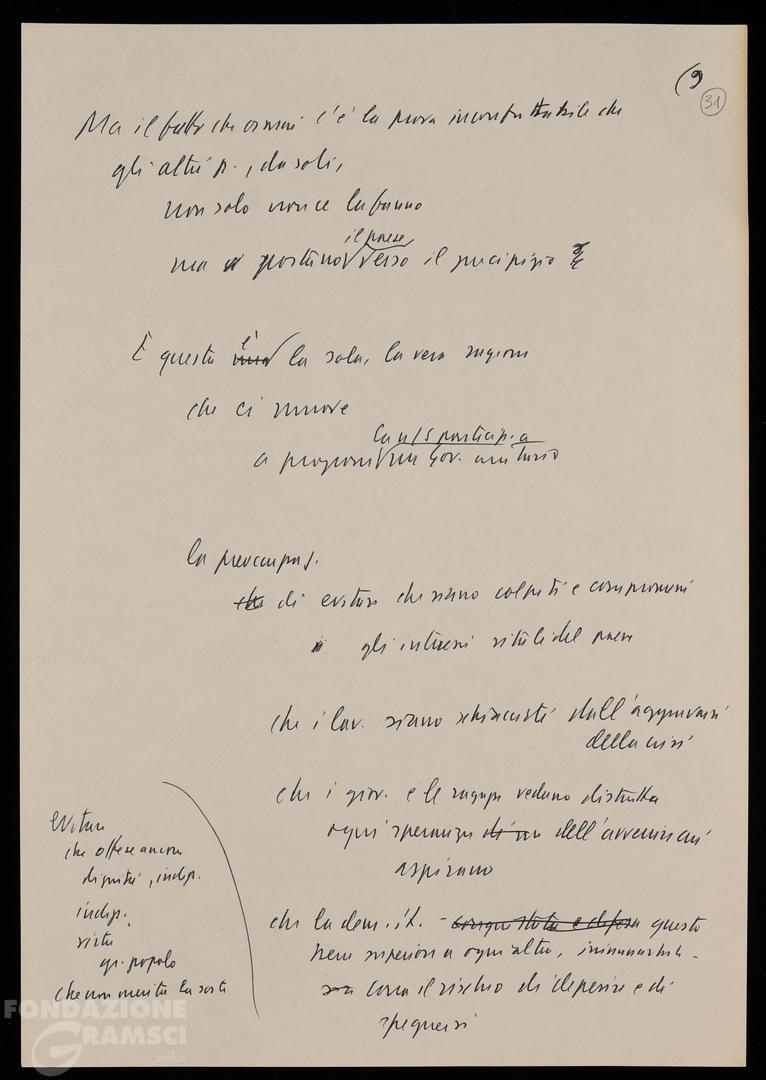 (9
31
Ma il fatto che ormai c'è la prova inconfuttabile che
gli altri p., da soli,
non solo non ce la fanno
il paese
ma portano verso il precipizio
È questa è la sola, la vera ragione
che ci muove
la n/s partecip. a
a proporre un Gov. unitario
la preoccupaz.
che di evitare che siano colpiti e compromessi
gli interessi vitali del paese
che i lav. siano schiacciati dall'aggravarsi
della crisi
che i giov. e le ragazze vedano distrutta
ogni speranza dell'avvenire cui
aspirano
che la dem. it. - conquistata e difesa questo
bene superiore a ogni altro, irrinunciabile -
corra il rischio di deperire e di
spegnersi
evitare
che offese ancora
dignità, indip.
indip.
virtù
gr. popolo
che non merita la sorte
FONDAZIONE
GRAMSCI
onlus